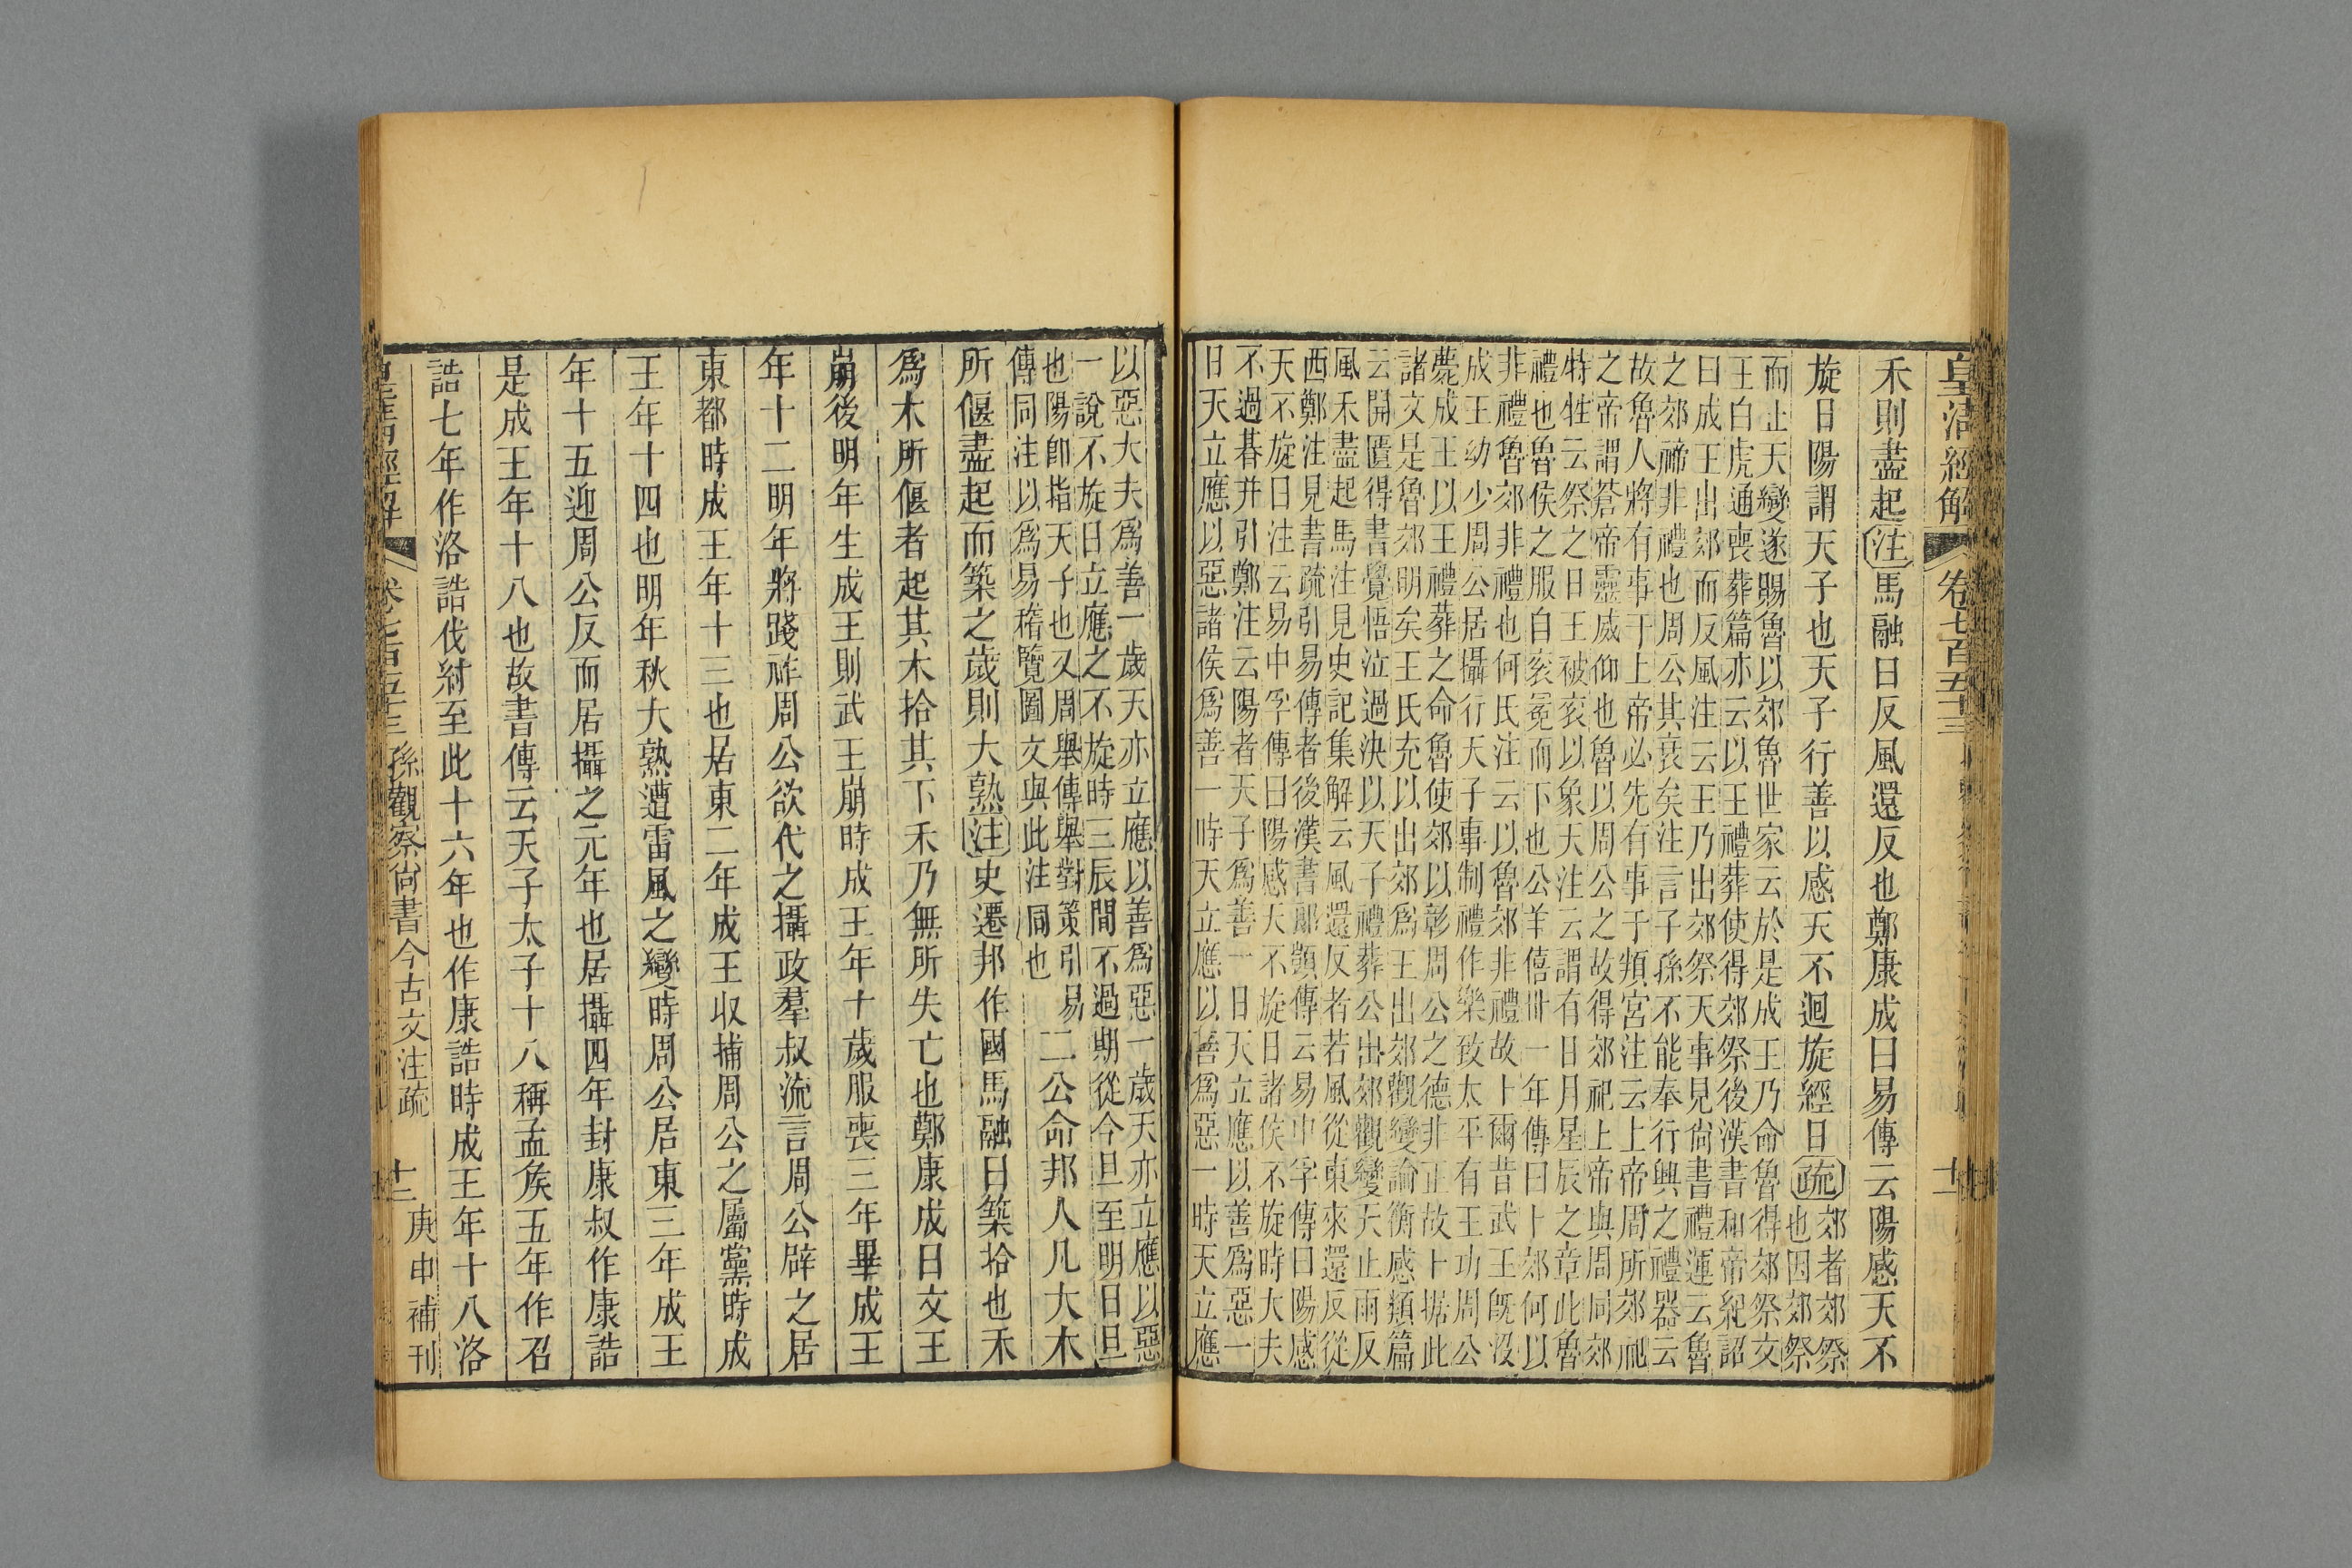 皇清經解 卷七百五十三
禾則盡起注馬融曰反風還反也鄭康成曰易傳云陽感天不
旋日陽謂天子也天子行善以感天不迴旋經日疏郊者郊祭
也因郊祭
而止天變遂賜魯以郊魯世家云於是成王乃命魯得郊祭文
王白虎通喪葬篇亦云以王禮葬使得郊祭後漢書和帝紀詔
曰成王出郊而反風注云王乃出郊祭天事見尙書禮運云魯
之郊禘非禮也周公其衰矣注言子孫不能奉行興之禮器云
故魯人將有事于上帝必先有事于頖宮注云上帝周所郊祀
之帝謂蒼帝靈威仰也魯以周公之故得郊祀上帝與周同郊
特牲云祭之日王被袞以象天注云謂有日月星辰之章此魯
禮也魯侯之服自袞冕而下也公羊僖卅一年傳曰卜郊何以
非禮魯郊非禮也何氏注云以魯郊非禮故卜爾昔武王旣沒
成王幼少周公居攝行天子事制禮作樂致太平有王功周公
薨成王以王禮葬之命魯使郊以彰周公之德非正故卜据此
諸文是魯郊明矣王氏充以出郊爲王出郊觀變論衡感類篇
云開匱得書覺悟泣過決以天子禮葬公出郊觀變天止雨反
風禾盡起馬注見史記集解云風還反者若風從東來還反從
西鄭注見書疏引易傳者後漢書郎顗傳云易中孚傳曰陽感
天不旋日注云易中孚傳曰陽感天不旋日諸侯不旋時大夫
不過朞并引鄭注云陽者天子爲善一日天立應以善爲惡一
日天立應以惡諸侯爲善一時天立應以善爲惡一時天立應
以惡大夫爲善一歲天亦立應以善爲惡一歲天亦立應以惡
一說不旋日立應之不旋時三辰間不過期從今旦至明日旦
也陽卽指天子也又周舉傳舉對策引易
傳同注以爲易稽覽圖文與此注同也
二公命邦人凡大木
所偃盡起而築之歲則大熟注史遷邦作國馬融曰築拾也禾
爲木所偃者起其木拾其下禾乃無所失亡也鄭康成曰文王
崩後明年生成王則武王崩時成王年十歲服喪三年畢成王
年十二明年將踐祚周公欲代之攝政羣叔流言周公辟之居
東都時成王年十三也居東二年成王收捕周公之屬黨時成
王年十四也明年秋大熟遭雷風之變時周公居東三年成王
年十五迎周公反而居攝之元年也居攝四年封康叔作康誥
是成王年十八也故書傳云天子太子十八稱孟侯五年作召
誥七年作洛誥伐紂至此十六年也作康誥時成王年十八洛
皇清經解 卷七百五十三 孫觀察尙書今古文注疏 十二 庚申補刊